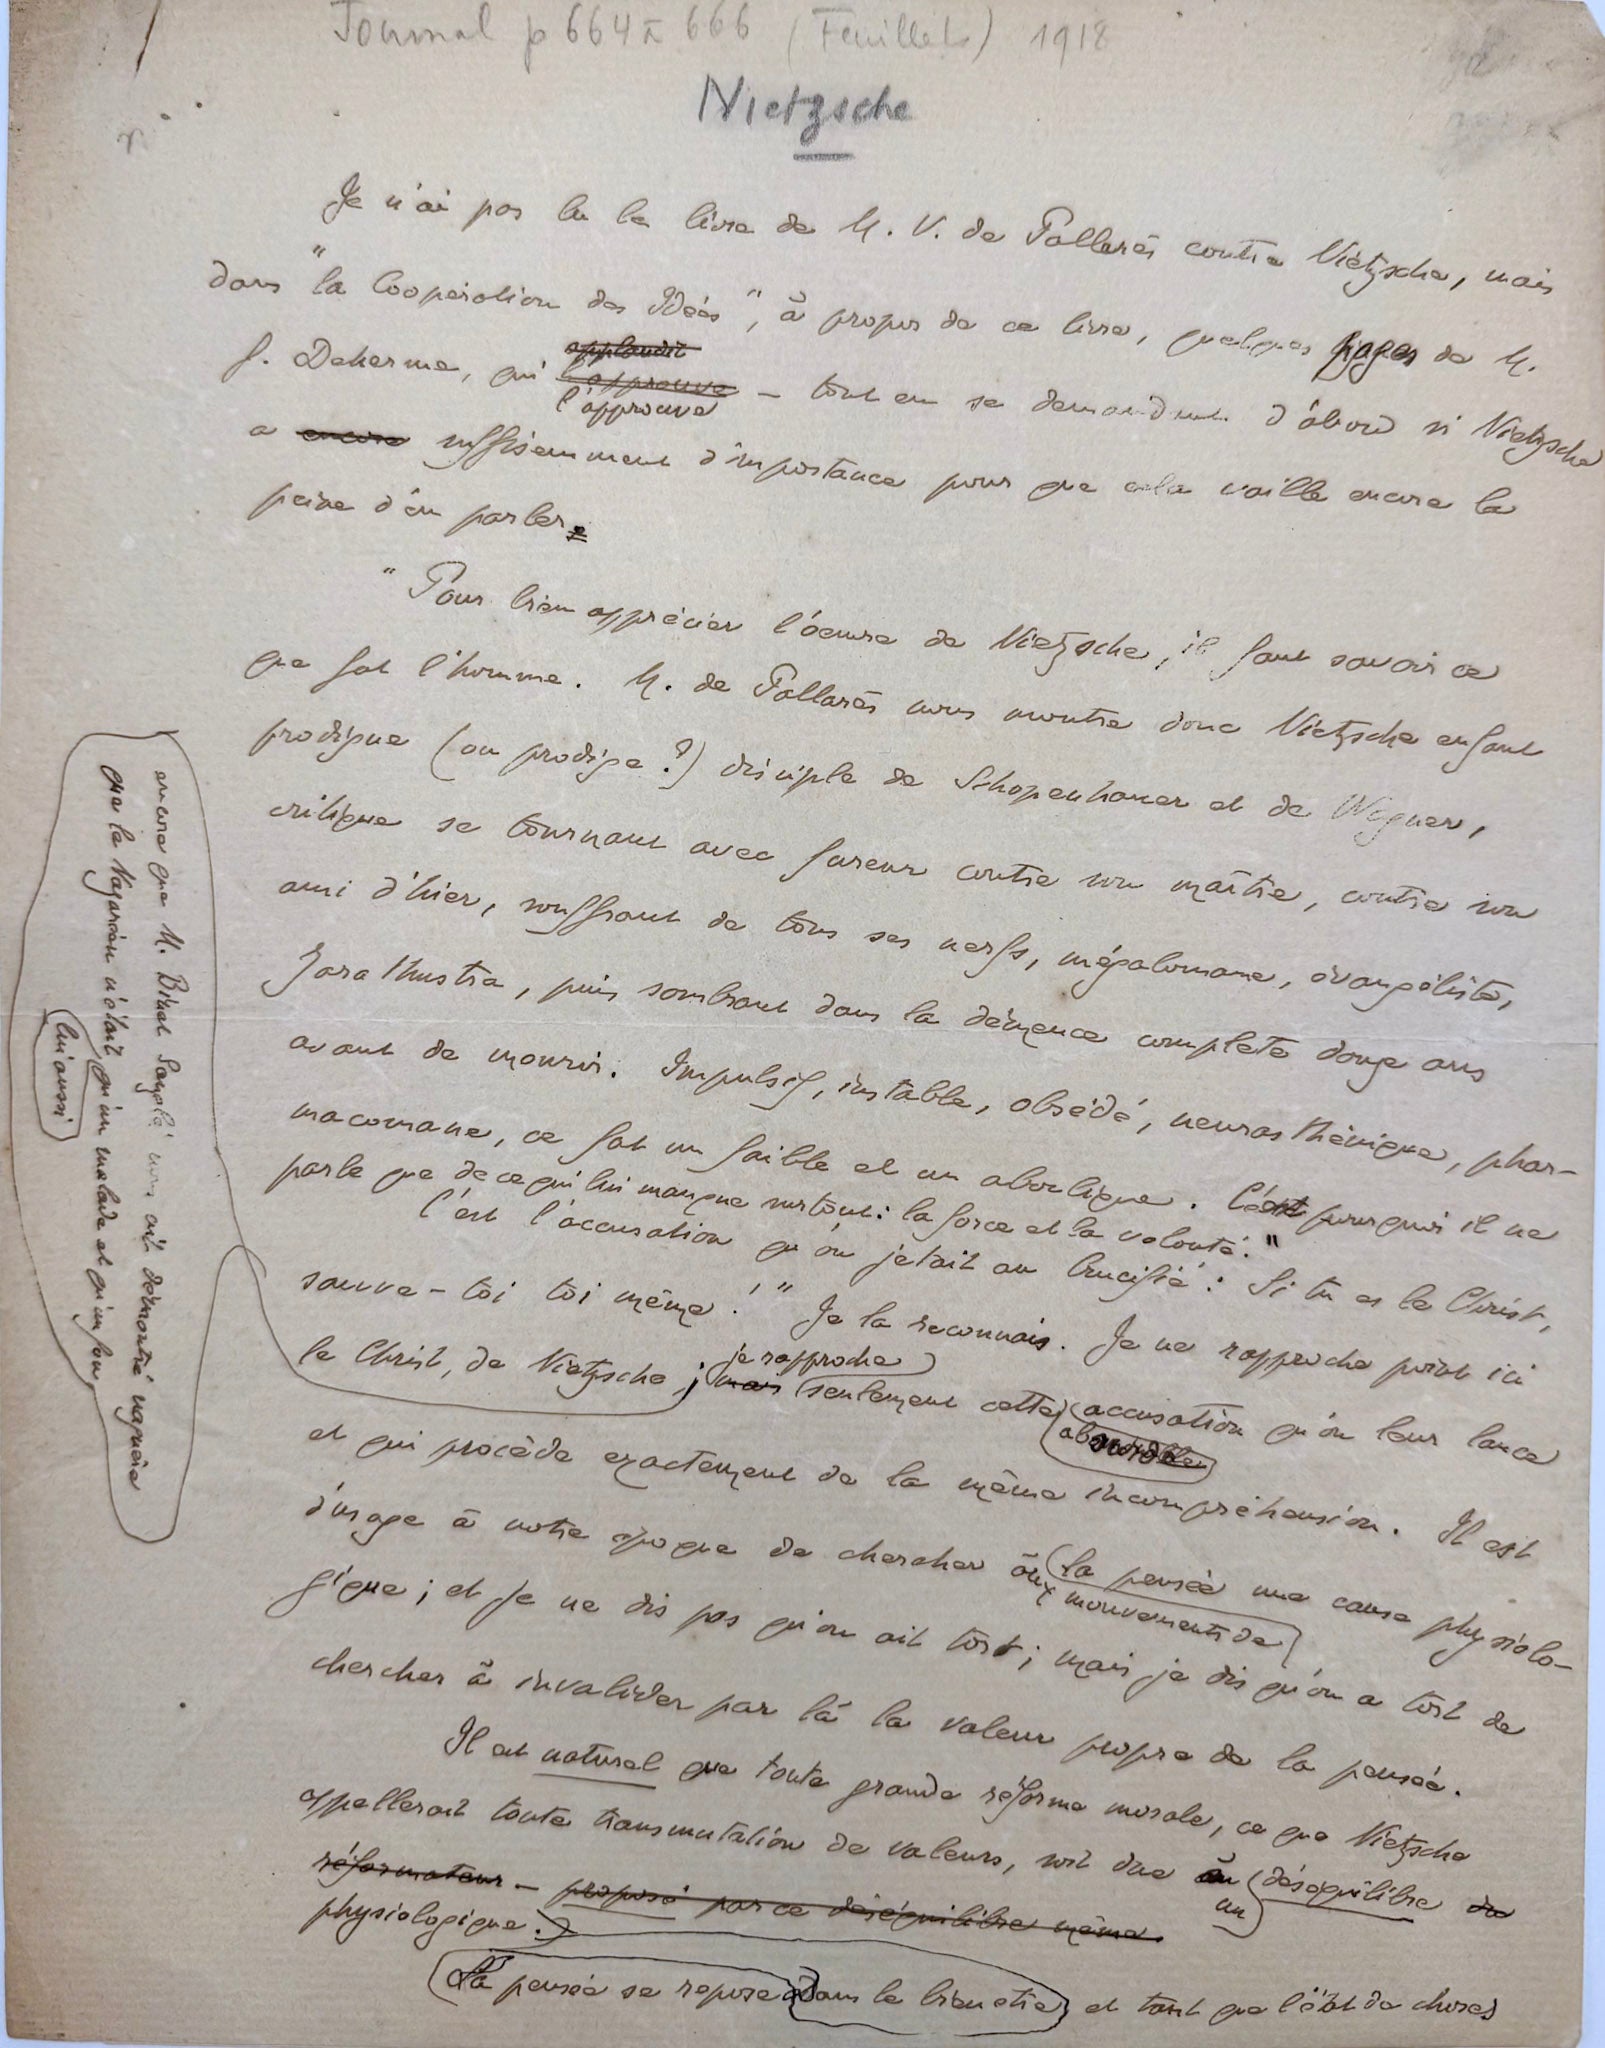 Journal p 664 à 666 (Feuillets) 1918
Nietzsche
Je n'ai pas lu le livre de M. V. de Pallarès contre Nietzsche, mais
dans "la Coopération des Idées", à propos de ce livre, quelques pages de M.
G. Deherme, qui applaudit l'approuve l'approuve – tout en se demandant d'abord si Nietzsche
a encore suffisamment d'importance pour que cela vaille encore la
peine d'en parler.
"Pour bien apprécier l'oeuvre de Nietzsche, il faut savoir ce
que fut l'homme. M. de Pallarès nous montre donc Nietzsche enfant
prodigue (ou prodige?) disciple de Schopenhauer et de Wagner,
critique se tournant avec fureur contre son maître, contre son
ami d'hier, souffrant de tous ses nerfs, mégalomane, évangéliste,
Zarathustra, puis sombrant dans la démence complète douze ans
avant de mourir. Impulsif, instable, obsédé, neurasthénique, phar-
macomane, ce fut un faible et un aboulique. C'est pourquoi il ne
parle que de ce qui lui manque surtout: la force et la volonté."
C'est l'accusation qu'on jetait au Crucifié: Si tu es le Christ,
sauve-toi toi même!" Je la reconnais. Je ne rapproche point ici
le Christ, de Nietzsche; mais je rapproche seulement cette accusation absurde qu'on leur lance
et qui procède exactement de la même incompréhension. Il est
d'usage à notre époque de chercher aux mouvements de la pensée une cause physiolo-
gique; et je ne dis pas qu'on ait tort; mais je dis qu'on a tort de
chercher à invalider par là la valeur propre de la pensée.
Il est naturel que toute grande réforme morale, ce que Nietzsche
appellerait toute transmutation de valeurs, soit due au un déséquilibre du
réformateur – proposé par ce déséquilibre même.
physiologique.
La pensée se repose dans le bien etre et tant que l'état de choses
encore que M. Binet Sanglé nous ait démontré naguère
que le Nazaréen n'était lui aussi qu'un malade et qu'un fou,